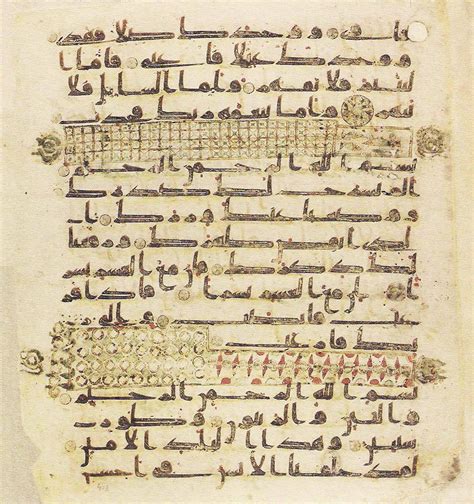 فاوى ووجدك ضالا فهدى
ووجدك عايلا فاغنى فاما ا
ليتيم فلا تقهر واما السايل فلا
تنهر واما بنعمة ربك فحدث
بسم الله الرحمن الرحيم
الم نشرح لك صدرك
ووضعنا عنك وزرك ا
لذي انقض ظهرك ورفعنا
لك ذكرك فان مع العسر
يسرا ان مع العسر يسرا فاذا فر
غت فانصب والى
ربك فارغب
بسم الله الرحمن الرحيم
والتين والزيتون وطور
سينين وهذا البلد الامين
لقد خلقنا الانسن في احسن